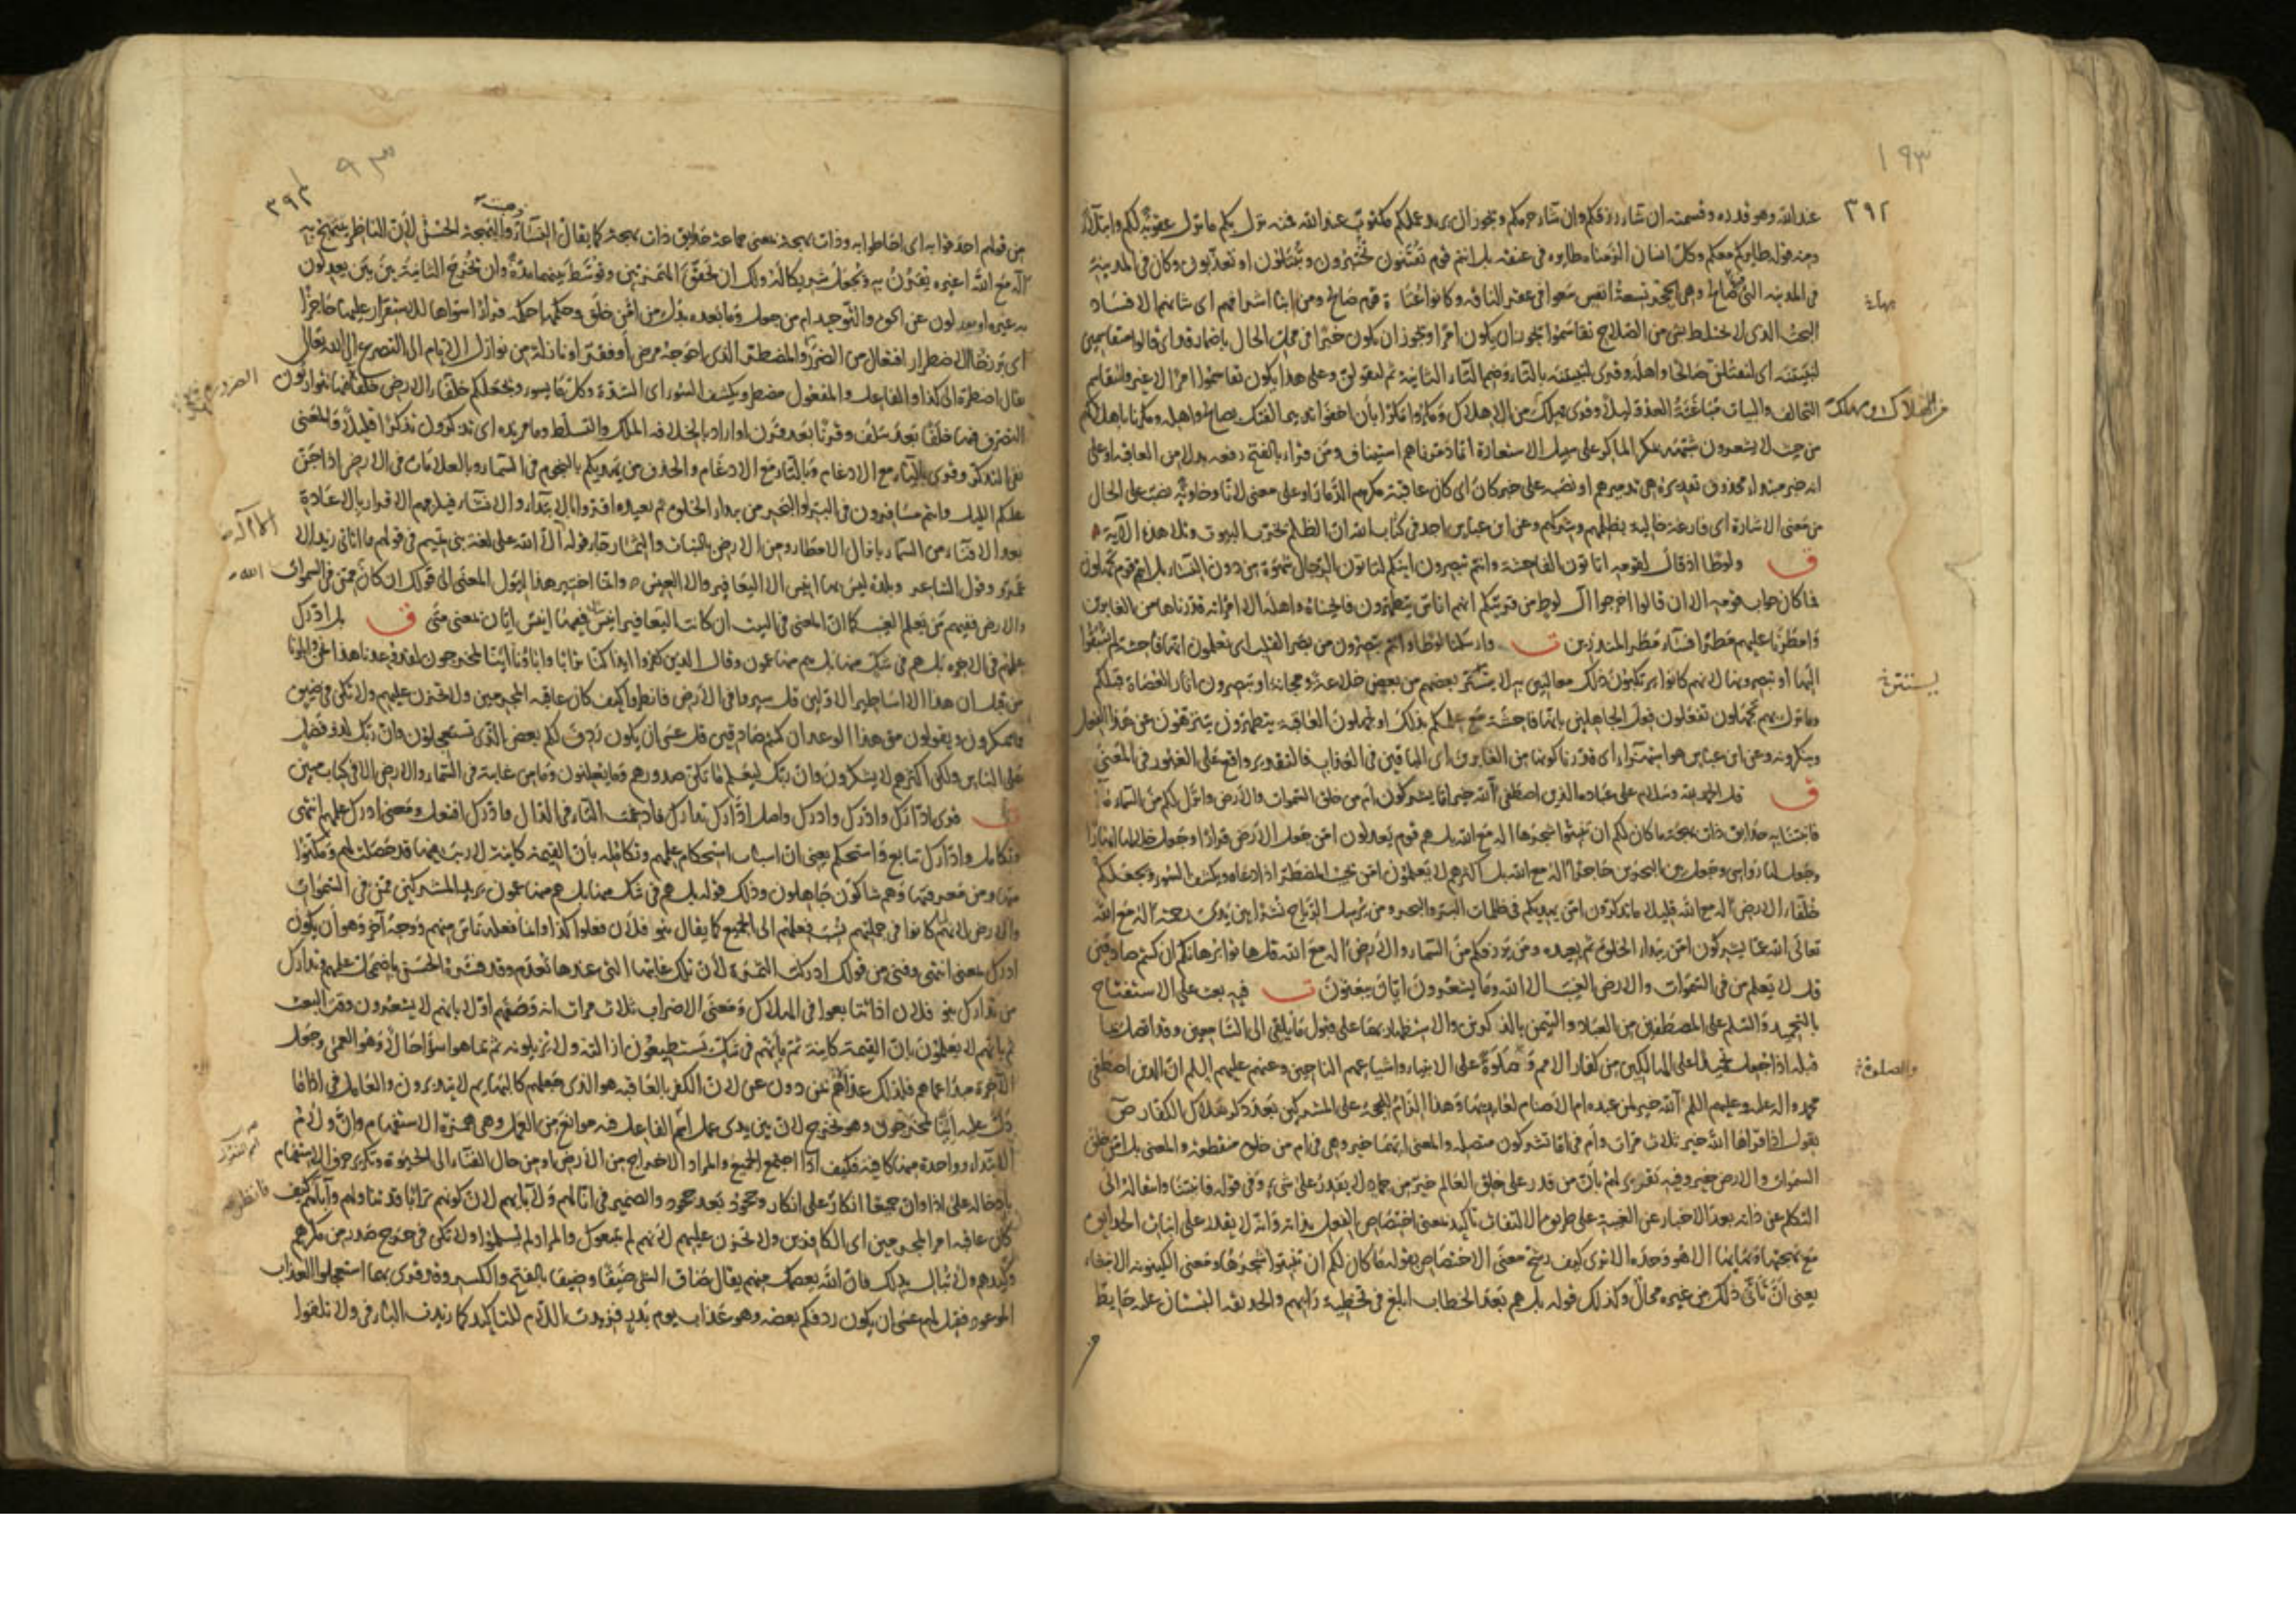 ١٩٣
٣٩٢
عند الله وهو قدره وقسمته ان شاء رزقكم وان شاء حرمكم ويجوز ان يريد عملكم مكتوب عند الله فمنه نزل بكم ما نزل عقوبة لكم وابتلاء
ومنه قوله طائركم معكم وكل انسان الزمناه طائره في عنقه بل انتم قوم تفتنون تختبرون وتبتلون او تعذبون وكان في المدينة
في المدينة التي فيها صالح وهي الحجر تسعة انفس سعوا في عقر الناقة وكانوا عتاة قوم صالح ومن ابناء اشرافهم اي شانهم الافساد
البحت الذي لا يختلط بشيء من الصلاح تقاسموا يجوز ان يكون امرا ويجوز ان يكون خبرا في محل الحال باضمار قد اي قالوا متقاسمين
لنبيتنه اي لنقتلن صالحا واهله وقرئ لتبيتنه بالتاء وضم التاء الثانية ثم لتقولن وعلى هذا يكون تقاسموا امرا لا غير والتقاسم
التحالف والبيات مباغتة العدو ليلا وقرئ مهلك من الاهلاك ومكروا مكرا بان اخفوا تدبير الفتك بصالح واهله ومكرنا باهلاكهم
من حيث لا يشعرون شبهه بمكر الماكر على سبيل الاستعارة انا دمرناهم استيناف ومن قراء بالفتح رفعه بدلا من العاقبة او على
انه خبر مبتداء محذوف تقديره هي تدميرهم او نصبه على خبر كان اي كان عاقبة مكرهم الدمار او على معنى لانا وخاوية نصب على الحال
من معنى الاشارة اي فارغة خالية بظلمهم وشركهم وعن ابن عباس اجد في كتاب الله ان الظلم يخرب البيوت وتلا هذه الاية
ق ولوطا اذ قال لقومه اتاتون الفاحشة وانتم تبصرون اينكم لتاتون الرجال شهوة من دون النساء بل انتم قوم تجهلون
فما كان جواب قومه الا ان قالوا اخرجوا آل لوط من قريتكم انهم اناس يتطهرون فانجيناه واهله الا امراته قدرناها من الغابرين
وامطرنا عليهم مطرا فساء مطر المنذرين ت وارسلنا لوطا وانتم تبصرون من بصر القلب اي تعلمون انها فاحشة لم تسبقوا
اليها او تبصرونها لانهم كانوا يرتكبون ذلك معالنين به لا يستتر بعضهم من بعض خلاعة ومجانة او تبصرون اثار العصاة قبلكم
وما نزل بهم تجهلون تفعلون فعل الجاهلين بانها فاحشة مع علمكم بذلك او تجهلون العاقبة يتطهرون يتنزهون عن هذا الفعل
وينكرونه وعن ابن عباس هو استهزاء اي قدرنا كونها من الغابرين اي الباقين في العذاب فالتقدير واقع على الغبور في المعنى
ق قل الحمد لله وسلام على عباده الذين اصطفى آلله خير اما يشركون ام من خلق السموات والارض وانزل لكم من السماء ماء
فانبتنا به حدايق ذات بهجة ما كان لكم ان تنبتوا شجرها اله مع الله بل هم قوم يعدلون امن جعل الارض قرارا وجعل خلالها انهارا
وجعل لها رواسي وجعل بين البحرين حاجزا اله مع الله بل اكثرهم لا يعلمون امن يجيب المضطر اذا دعاه ويكشف السوء ويجعلكم
خلفاء الارض اله مع الله قليلا ما تذكرون امن يهديكم في ظلمات البر والبحر ومن يرسل الرياح نشرا بين يدي رحمته اله مع الله
تعالى الله عما يشركون امن يبدؤ الخلق ثم يعيده ومن يرزقكم من السماء والارض اله مع الله قل هاتوا برهانكم ان كنتم صادقين
قل لا يعلم من في السموات والارض الغيب الا الله وما يشعرون ايان يبعثون ت فيه بعث على الاستفتاح
بالتحميد والسلم على المصطفين من العباد والتيمن بالذكرين والاستظهار بهما على قبول ما يلقى الى السامعين
محمد وآله عليه وعليهم السلم آلله خير لمن عبده ام الاصنام لعابديها وهذا الزام للحجة على المشركين بعد ذكر هلاك الكفار
السموات والارض خير وفيه تقرير لهم بان من قدر على خلق العالم خير من جماد لا يقدر على شيء وفي قوله فانبتنا وانتقاله الى
التكلم عن ذاته بعد الاخبار عن الغيبة على طريق الالتفات تاكيد بمعنى اختصاص الفعل بذاته وانه لا يقدر على انبات الحدايق
مع بهجتها وبهائها الا هو وحده الا ترى كيف رشح معنى الاختصاص بقوله ما كان لكم ان تنبتوا شجرها ومعنى الكينونة الانبغاء
يعني ان تأتي ذلك من غيره محال وكذلك قوله بل هم بعد الخطاب ابلغ في تخطية رايهم والحديقة البستان عليه حايط
يستتر
والصلوة
٣٩٣
من قولهم احدقوا به اي احاطوا به وذات بهجة بمعنى جماعة حدايق ذات بهجة كما يقال النساء ذهبت والبهجة الحسن لان الناظر يبتهج به
اله مع الله اغيره يقرن به ويجعل شريكا له ولك ان تحقق الهمزتين وتوسط بينهما مدة وان تخرج الثانية بين بين يعدلون
به غيره او يعدلون عن الحق والتوحيد ام من جعل وما بعده بدل من امن خلق وحكمها حكمه قرارا سواها للاستقرار عليها حاجزا
اي برزخا الاضطرار افتعال من الضرورة والمضطر الذي احوجه مرض او فقر او نازلة من نوازل الايام الى التضرع الى الله تعالى
يقال اضطره الى كذا والفاعل والمفعول مضطر ويكشف السوء اي الشدة وكل ما يسوء ويجعلكم خلفاء الارض خلفاء فيها تتوارثون
التصرف فيها خلفا بعد سلف وقرنا بعد قرن او اراد بالخلافة الملك والتسلط وما مزيدة اي تذكرون تذكرا قليلا والمعنى
نفي التذكر وقرئ بالياء مع الادغام وبالتاء مع الادغام والحذف من يهديكم بالنجوم في السماء وبالعلامات في الارض اذا جن
عليكم الليل وانتم مسافرون في البر والبحر
بعد الافناء من السماء بانزال الامطار ومن الارض بالنبات والثمار
والارض ففيهم من يعلم الغيب كما ان المعنى في البيت ان كانت اليعافير انيسا ففيها انيس ايان بمعنى متى ق بل ادرك
علمهم في الاخرة بل هم في شك منها بل هم منها عمون وقال الذين كفروا ائذا كنا ترابا واباؤنا اينا لمخرجون لقد وعدنا هذا نحن واباؤنا
من قبل ان هذا الا اساطير الاولين قل سيروا في الارض فانظروا كيف كان عاقبة المجرمين ولا تحزن عليهم ولا تكن في ضيق
مما يمكرون ويقولون متى هذا الوعد ان كنتم صادقين قل عسى ان يكون ردف لكم بعض الذي تستعجلون وان ربك لذو فضل
على الناس ولكن اكثرهم لا يشكرون وان ربك ليعلم ما تكن صدورهم وما يعلنون وما من غائبة في السماء والارض الا في كتاب مبين
ت قرئ ادارك وادرك وادرك واصل ادارك تدارك فادغمت التاء في الدال وادرك افتعل ومعنى ادرك علمهم انتهى
وتكامل وادارك تتابع واستحكم يعني ان اسباب استحكام علمهم وتكامله بان القيمة كاينة لا ريب فيها قد حصلت لهم ومكنوا
منها ومن معرفتها وهم شاكون جاهلون وذلك قوله بل هم في شك منها بل هم منها عمون يريد المشركين ممن في السموات
والارض لانهم لما كانوا في جملتهم نسب فعلهم الى الجميع كما يقال بنو فلان فعلوا كذا وانما فعله ناس منهم ووجه آخر وهو ان يكون
ادرك بمعنى انتهى وفني من قولك ادركت الثمرة لان تلك غايتها التي عندها تعدم وقد فسره الحسن باضمحل علمهم وتدارك
من تدارك بنو فلان اذا تتابعوا في الهلاك ومعنى الاضراب ثلاث مرات انه وصفهم اولا بانهم لا يشعرون وقت البعث
ثم بانهم لا يعلمون بان القيمة كاينة ثم بانهم في شك يستطيعون ازالته ولا يزيلونه ثم بما هو اسوأ حالا وهو العمى وجعل
الآخرة مبدا عماهم فلذلك عداه بمن دون عن لان الكفر بالعاقبة هو الذي جعلهم كالبهايم لا يتدبرون والعامل في اذا ما
دل عليه اينا لمخرجون وهو نخرج لان بين يدي عمل اسم الفاعل فيه موانع من العمل وهي همزة الاستفهام وان ولام
الابتداء وواحدة منها كافية فكيف اذا اجتمع الجميع والمراد الاخراج من الارض او من حال الفناء الى الحيوة وتكرير حرف الاستفهام
بادخاله على اذا وان جميعا انكار على انكار وجحود بعد جحود والضمير في انا لهم ولآبائهم لان كونهم ترابا قد تناولهم وآباءهم كيف
كان عاقبة امر المجرمين اي الكافرين ولا تحزن عليهم لانهم لم يتبعوك والمراد لم يسلموا ولا تكن في حرج صدر من مكرهم
وكيدهم ولا تبال بذلك فان الله يعصمك منهم يقال ضاق الشيء ضيقا وضيقا بالفتح والكسر وقد قرئ بهما استعجلوا العذاب
الموعود فقيل لهم عسى ان يكون ردفكم بعضه وهو عذاب يوم بدر فزيدت اللام للتاكيد كما زيدت الباء في ولا تلقوا